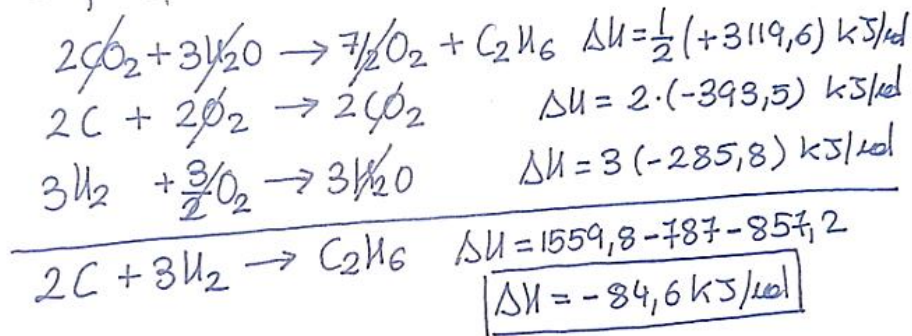 2CO₂ + 3H₂O → 7/2 O₂ + C₂H₆ ΔH = 1/2 (+3119,6) kJ/mol
2C + 2O₂ → 2CO₂ ΔH = 2·(-393,5) kJ/mol
3H₂ + 3/2 O₂ → 3H₂O ΔH = 3(-285,8) kJ/mol
2C + 3H₂ → C₂H₆ ΔH = 1559,8 - 787 - 857,2
ΔH = -84,6 kJ/mol